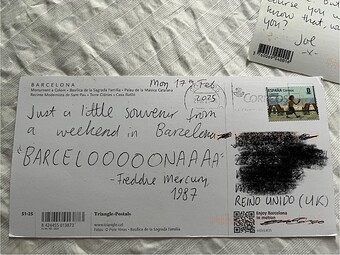 course you w
know that, wa
you?
Joe
-x-
BARCELONA
Monument a Colom • Basílica de la Sagrada Família • Palau de la Música Catalana
Recinte Modernista de Sant Pau • Torre Glòries • Casa Batlló
Mon 17th Feb
2025
CORREOS
ESPAÑA
Just a little souvenir from
a weekend in Barcelona
"BARCELOOOOONAAAA"
-Freddie Mercury,
1987
REINO UNIDO (UK)
21-25
Triangle·Postals
www.triangle.cat
Enjoy Barcelona
in motion